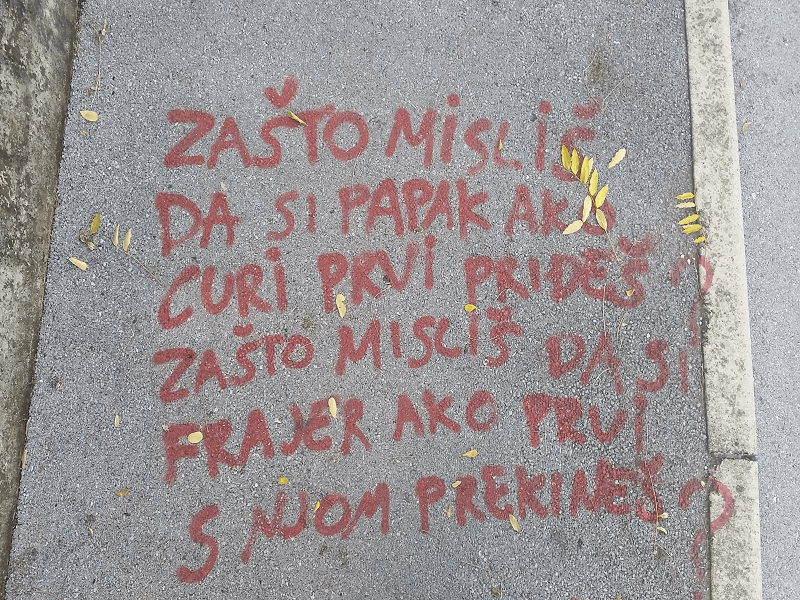 ZAŠTO MISLIŠ
DA SI PAPAK AKO
CURI PRVI PRIĐEŠ?
ZAŠTO MISLIŠ DA SI
FRAJER AKO PRVI
S NJOM PREKINEŠ?